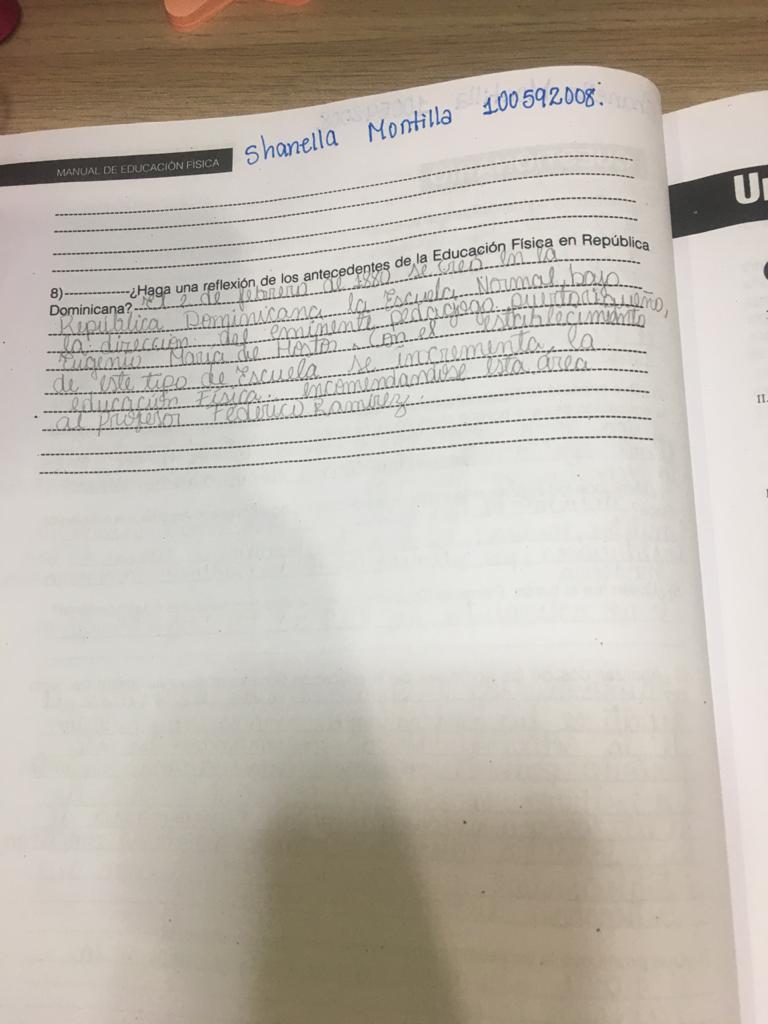 Shanella Montilla 100592008.
MANUAL DE EDUCACIÓN FÍSICA
8)------------¿Haga una reflexión de los antecedentes de la Educación Física en República
Dominicana? El 2 de febrero de 1880 se creó en la
República Dominicana la Escuela Normal, bajo
la dirección del eminente pedagogo puertorriqueño,
Eugenio María de Hostos. Con el establecimiento
de este tipo de Escuela se incrementa la
educación Física. encomendandose esta área
al profesor Federico Ramírez.
Un
II.